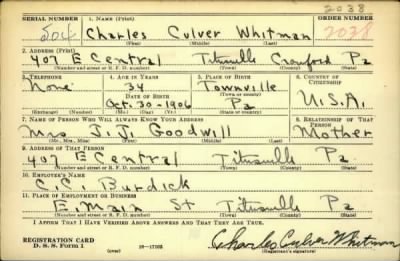 2038
SERIAL NUMBER 1. NAME (Print) ORDER NUMBER
504 Charles Culver Whitman 2038
(First) (Middle) (Last)
2. ADDRESS (Print)
407 E Central Titusville Crawford Pa
(Number and street or R. F. D. number) (Town) (County) (State)
3. TELEPHONE 4. AGE IN YEARS 5. PLACE OF BIRTH 6. COUNTRY OF CITIZENSHIP
None 34 Townville
DATE OF BIRTH (Town or county)
Oct. 30 - 1906 Pa U.S.A.
(Exchange) (Number) (Mo.) (Day) (Yr.) (State or country)
7. NAME OF PERSON WHO WILL ALWAYS KNOW YOUR ADDRESS 8. RELATIONSHIP OF THAT PERSON
Mrs J. J. Goodwill Mother
(Mr., Mrs., Miss) (First) (Middle) (Last)
9. ADDRESS OF THAT PERSON
407 E Central Titusville Pa
(Number and street or R. F. D. number) (Town) (County) (State)
10. EMPLOYER'S NAME
C. C. Burdick
11. PLACE OF EMPLOYMENT OR BUSINESS
E. Main St Titusville Pa
(Number and street or R. F. D. number) (Town) (County) (State)
I AFFIRM THAT I HAVE VERIFIED ABOVE ANSWERS AND THAT THEY ARE TRUE.
REGISTRATION CARD
D. S. S. Form 1 (over) 16-17105 Charles Culver Whitman
(Registrant's signature)